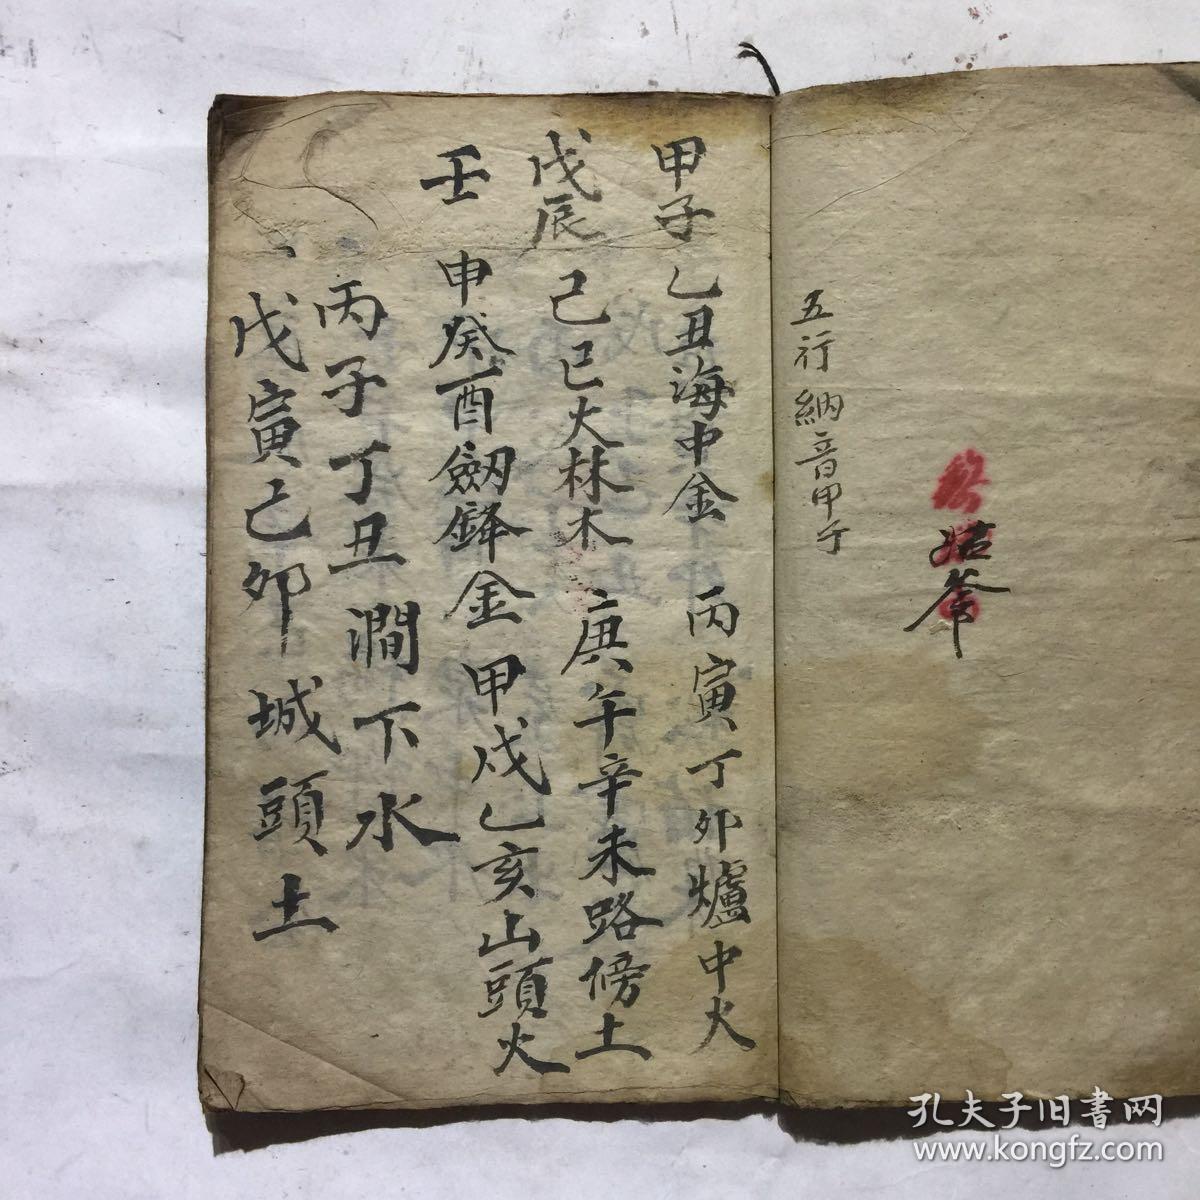 五行納音甲子
甲子乙丑海中金 丙寅丁卯爐中火
戊辰己巳大林木 庚午辛未路傍土
壬申癸酉劒鋒金 甲戌乙亥山頭火
丙子丁丑澗下水
戊寅己卯城頭土
孔夫子旧書网
www.kongfz.com